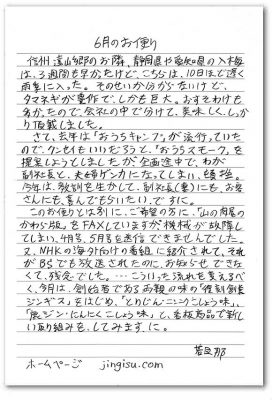 6月のお便り
信州 遠山郷のお隣、静岡県や愛知県の入梅
は、3週間も早かったけど、こちらは、10日ほど遅く
雨季に入った。そのせいか分からないけど、
タマネギが豊作で、しかも巨大。おすそわけも
多かったので、会社の中で分けて、美味しく、しっか
り頂戴しました。
さて、去年は「おうちキャンプ」が流行っていた
ので、クンセイもいいだろうて、「おうちスモーク」を
提案しようとしましたが企画途中で、わが
副社長と、夫婦ゲンカになってしまい、頓挫。
今年は、教訓を生かして、副社長(妻)にも、お客
さんにも喜んでもらいたい、ですに。
このお便りとは別に、ご希望の方に、「山の肉屋の
かわら版」をFAXしていますが機械が故障し
てしまい、4月号、5月号を送信できませんでした。
又、NHKの海外向けの番組に紹介されて、それ
がBSでも放送されたのに、お知らせできな
くて、残念でした。…こういった流れを変えるべ
く、今月は、創始者であるお親の味の「復刻創業
ジンギス」をはじめ、「とりじん・こうじこしょう味」、
「豚ジン・にんにくこしょう味」と、看板商品で新し
い取り組みを、してみますに。
若旦那
ホームページ jingisu.com